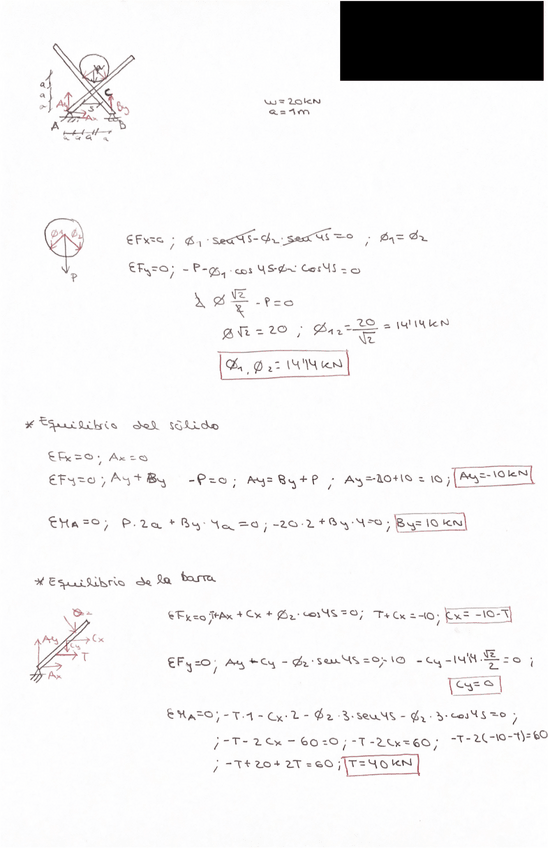 a
a
a
P
C
Ay
Ax
By
S
A
B
a a a a
W=20KN
a=1m
Ø1 Ø2
P
ΣFx=0; Ø1·sen45-Ø2·sen45=0; Ø1=Ø2
ΣFy=0; -P-Ø1·cos45-Ø2·cos45=0
2 Ø √2/2 -P=0
Ø√2=20; Ø1,2=20/√2=14'14KN
Ø1, Ø2=14'14KN
* Equilibrio del sólido
ΣFx=0; Ax=0
ΣFy=0; Ay+By -P=0; Ay=By+P; Ay=-20+10=10; Ay=-10KN
ΣMA=0; P·2a+By·4a=0; -20·2+By·4=0; By=10KN
* Equilibrio de la barra
Ø2
Ay
Cx
Cy
T
Ax
ΣFx=0; T+Ax+Cx+Ø2·cos45=0; T+Cx=-10; Cx=-10-T
ΣFy=0; Ay+Cy-Ø2·sen45=0; -10 -Cy-14'14·√2/2=0;
Cy=0
ΣMA=0; -T·1-Cx·2-Ø2·3·sen45-Ø2·3·cos45=0;
; -T-2Cx-60=0; -T-2Cx=60; -T-2(-10-T)=60
; -T+20+2T=60; T=40KN